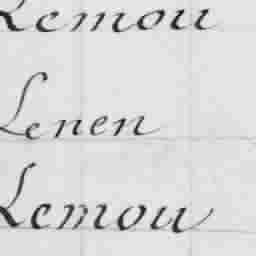 Lemou
Lenen
Lemou